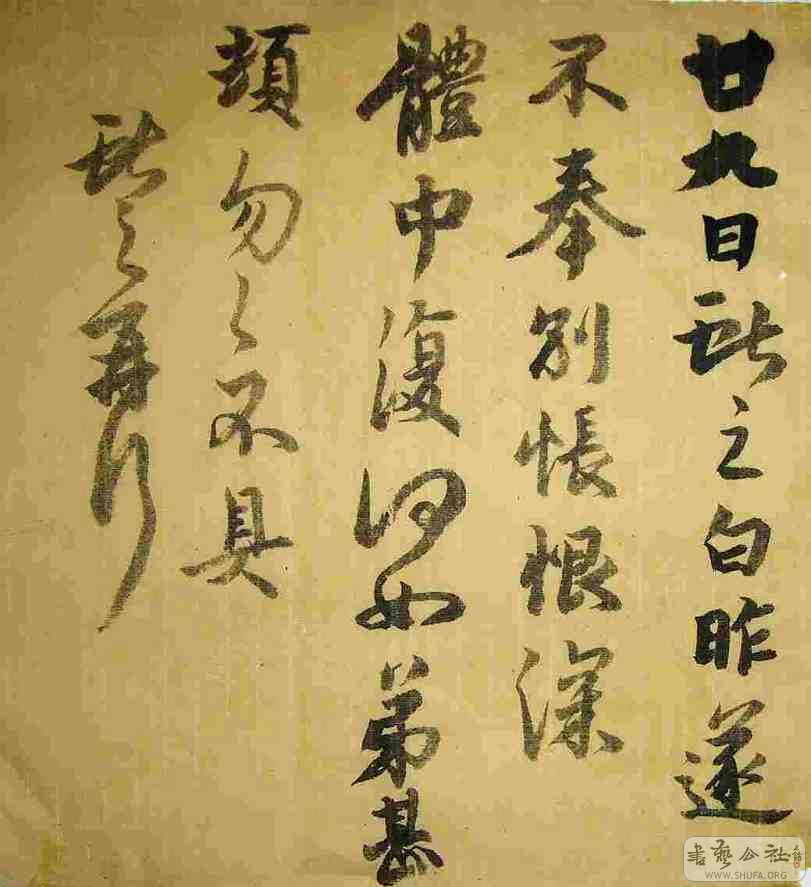 廿九日獻之白昨遂
不奉別悵恨深
體中復何如弟甚
頓勿〻不具
獻之再拜
書藝公社
WWW.SHUFA.ORG